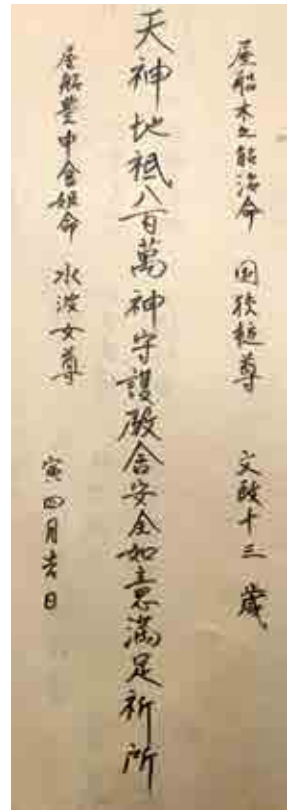 屋船木之能治命 国狭槌尊 文政十三歳
天神地祇八百萬神守護殿舎安全如意滿足祈所
屋船豊中倉姫命 水波女尊 寅四月吉日